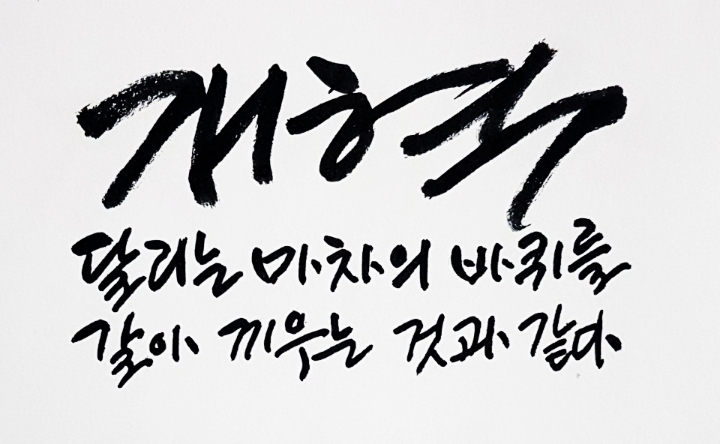 개혁
달리는 마차의 바퀴를
갈아 끼우는 것과 같다